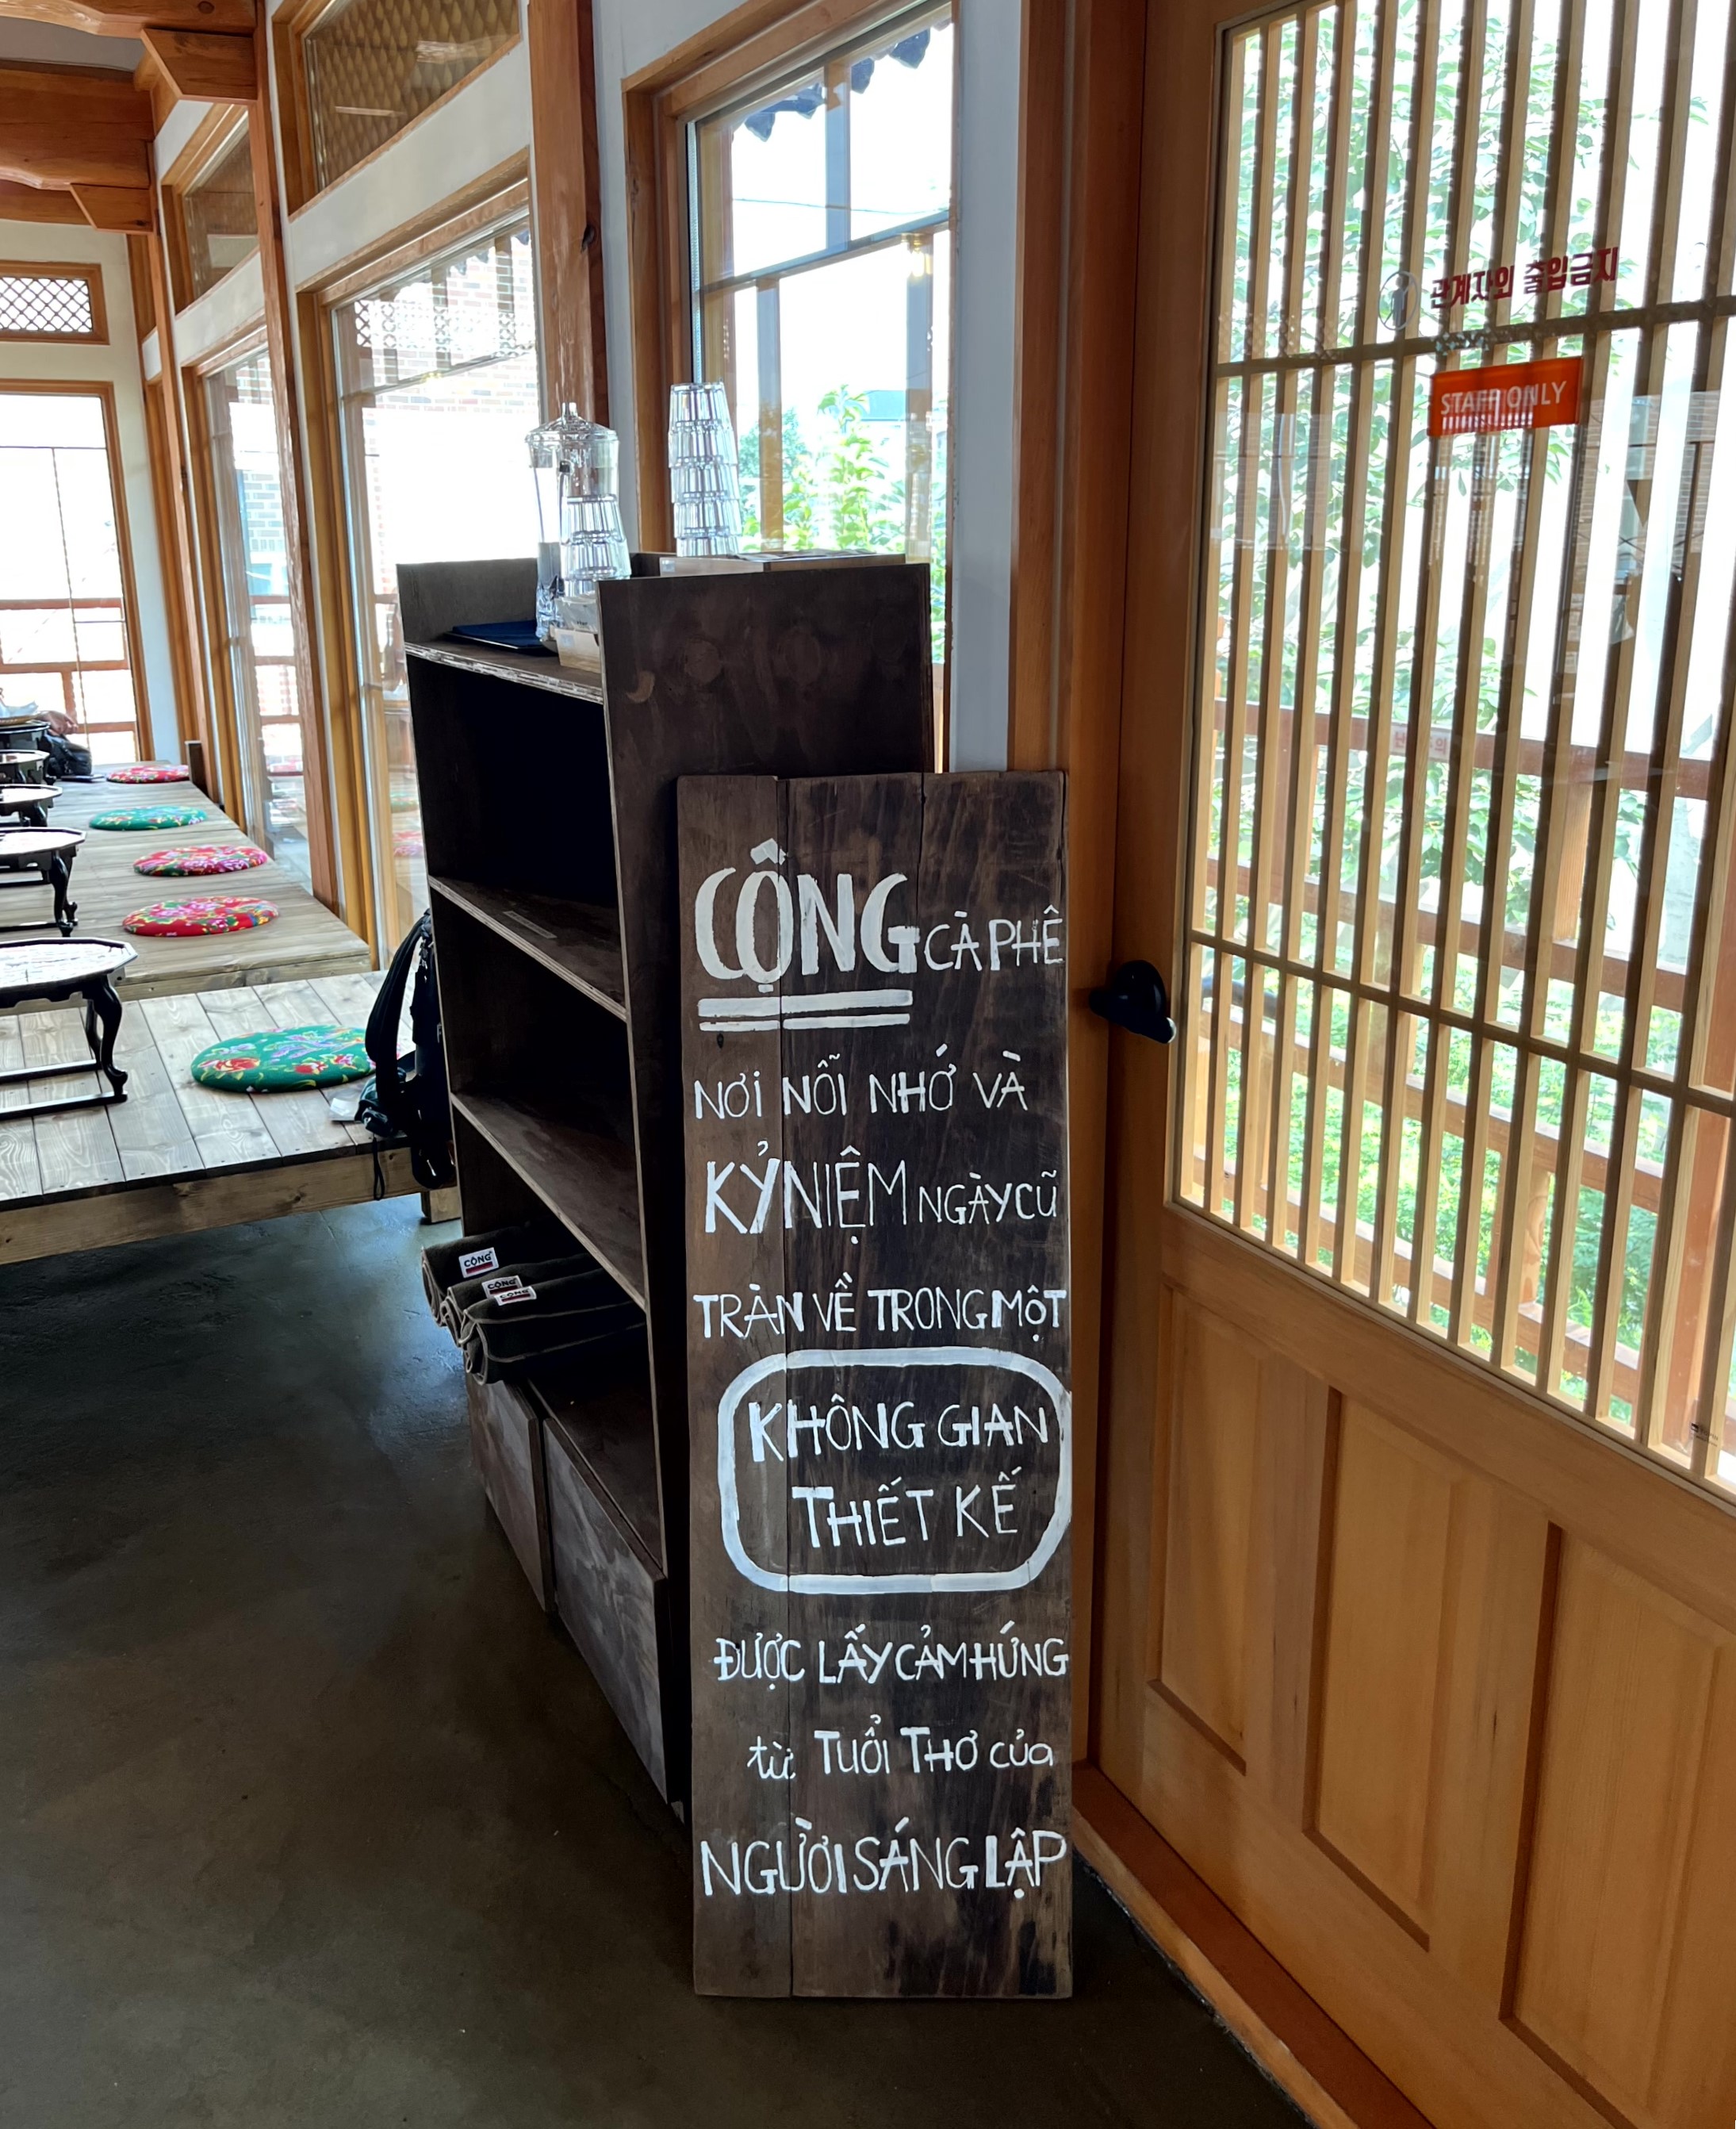 관계자외 출입금지
STAFF ONLY
CỘNG CÀ PHÊ
NƠI NỖI NHỚ VÀ
KỶ NIỆM NGÀY CŨ
TRÀN VỀ TRONG MỘT
KHÔNG GIAN
THIẾT KẾ
ĐƯỢC LẤY CẢM HỨNG
từ TUỔI THƠ của
NGƯỜI SÁNG LẬP
CỘNG
CỘNG
CỘNG